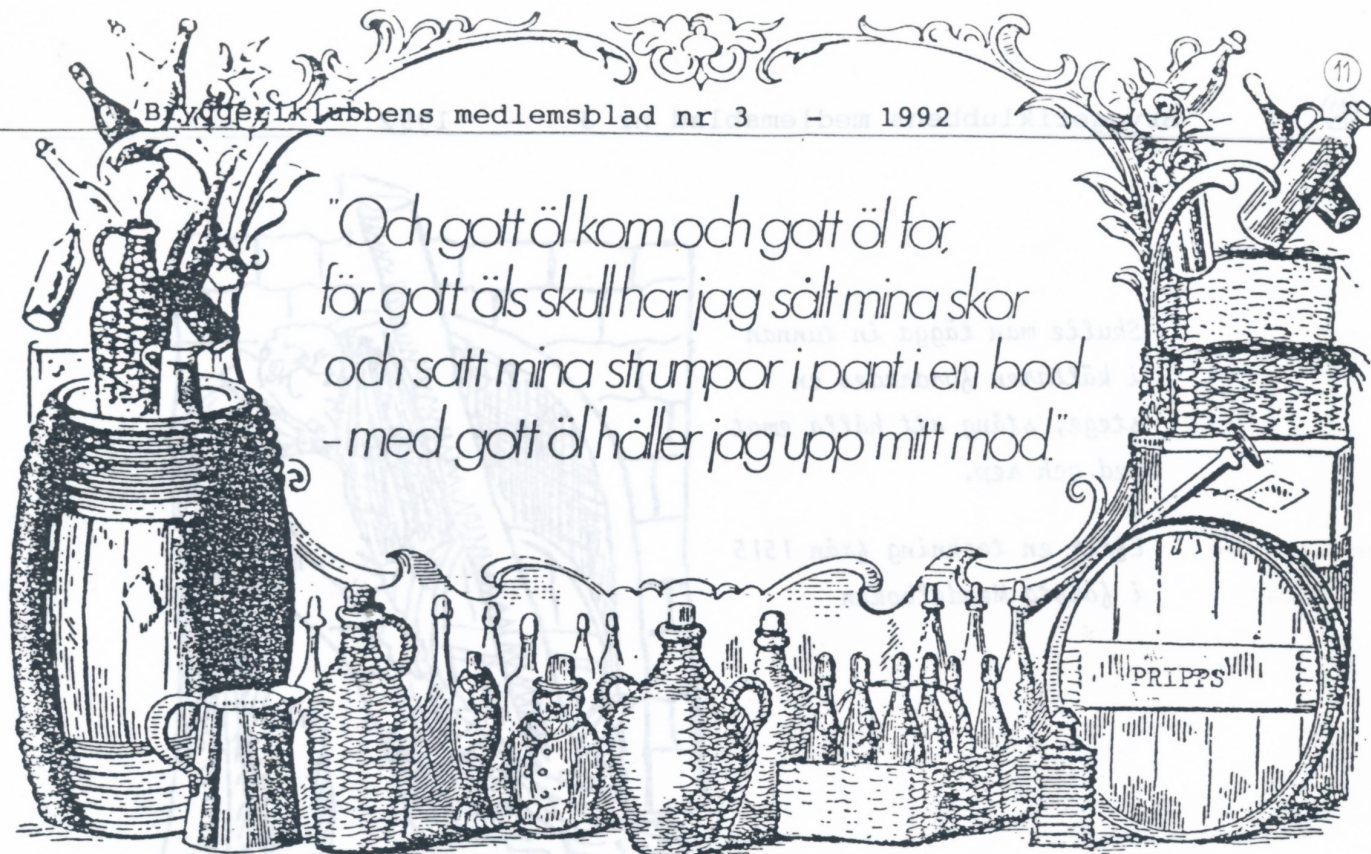 Bryggeriklubbens medlemsblad nr 3 1992
11
"Och gott öl kom och gott öl for,
för gott öls skull har jag sålt mina skor
och satt mina strumpor i pant i en bod
– med gott öl håller jag upp mitt mod."
PRIPPS